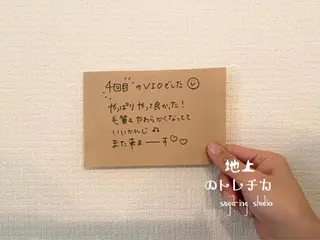 4回目のVIOでした
やっぱりやって良かった!
毛質もやわらかくなってて
いいかんじ♫
また来まーす♡♡
地上
のトレチカ
sugaring studio